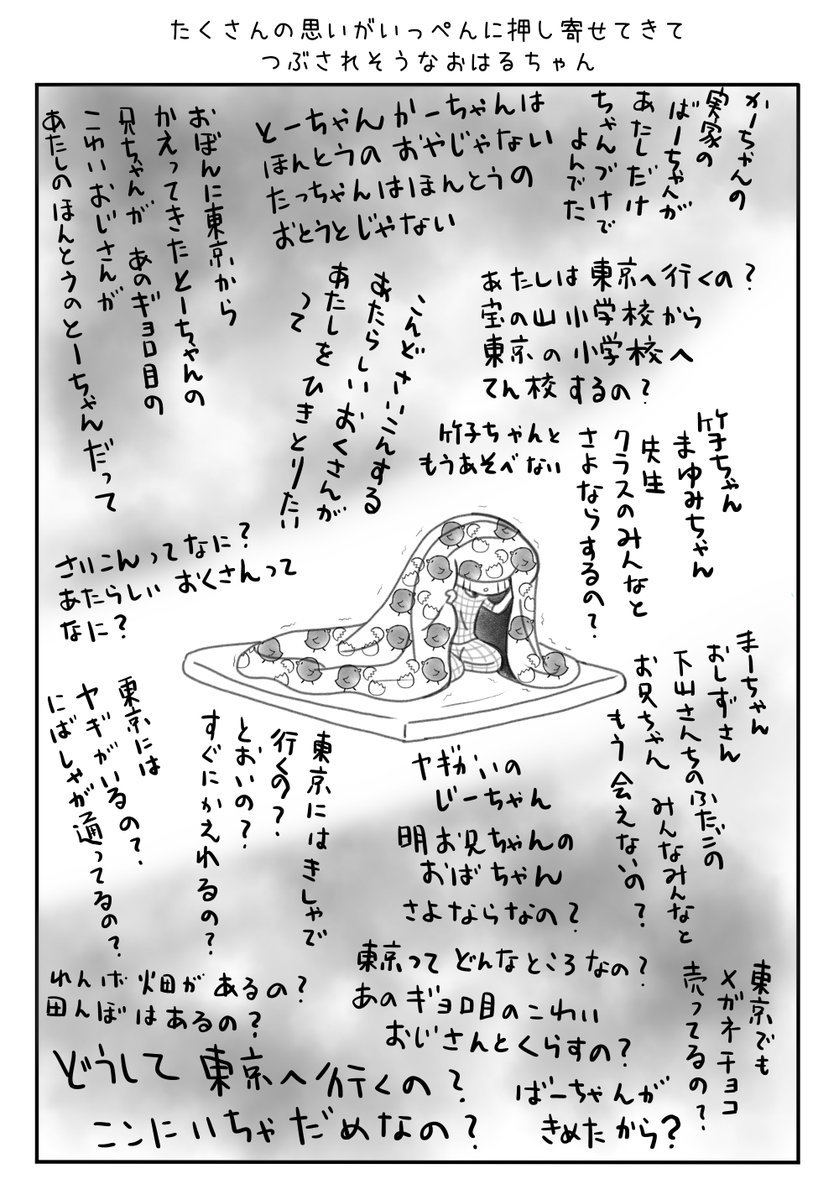 たくさんの思いがいっぺんに押し寄せてきて
つぶされそうなおはるちゃん
かーちゃんの
実家の
ばーちゃんが
あたしだけ
ちゃんづけで
よんでた
とーちゃん かーちゃんは
ほんとうの おやじゃない
たっちゃんは ほんとうの
おとうとじゃない
おぼんに東京から
かえってきたとーちゃんの
兄ちゃんが あのギョロ目の
こわいおじさんが
あたしのほんとうのとーちゃんだって
あたしは 東京へ 行くの?
宝の山 小学校 から
東京の 小学校へ
てん校 するの?
こんどさいこんする
あたらしいおくさんが
あたしをひきとりたい
って
竹子ちゃん
まゆみちゃん
先生
クラスのみんなと
さよならするの?
竹子ちゃんと
もうあそべない
さいこんってなに?
あたらしい おくさんって
なに?
まーちゃん
おしずさん
下山さんちのふたごの
お兄ちゃん みんなみんなと
もう 会えないの?
東京にはきしゃで
行くの?
とおいの?
すぐにかえれるの?
東京には
ヤギがいるの?
にばしゃが通ってるの?
ヤギかいの
じーちゃん
明お兄ちゃんの
おばちゃん
さよならなの?
東京でも
メガネチョコ
売ってるの?
東京って どんなところ なの?
あのギョロ目のこわい
おじさんとくらすの?
れんげ畑が あるの?
田んぼ はあるの?
どうして 東京へ 行くの?
ここにいちゃ だめなの?
ばーちゃんが
きめた から?